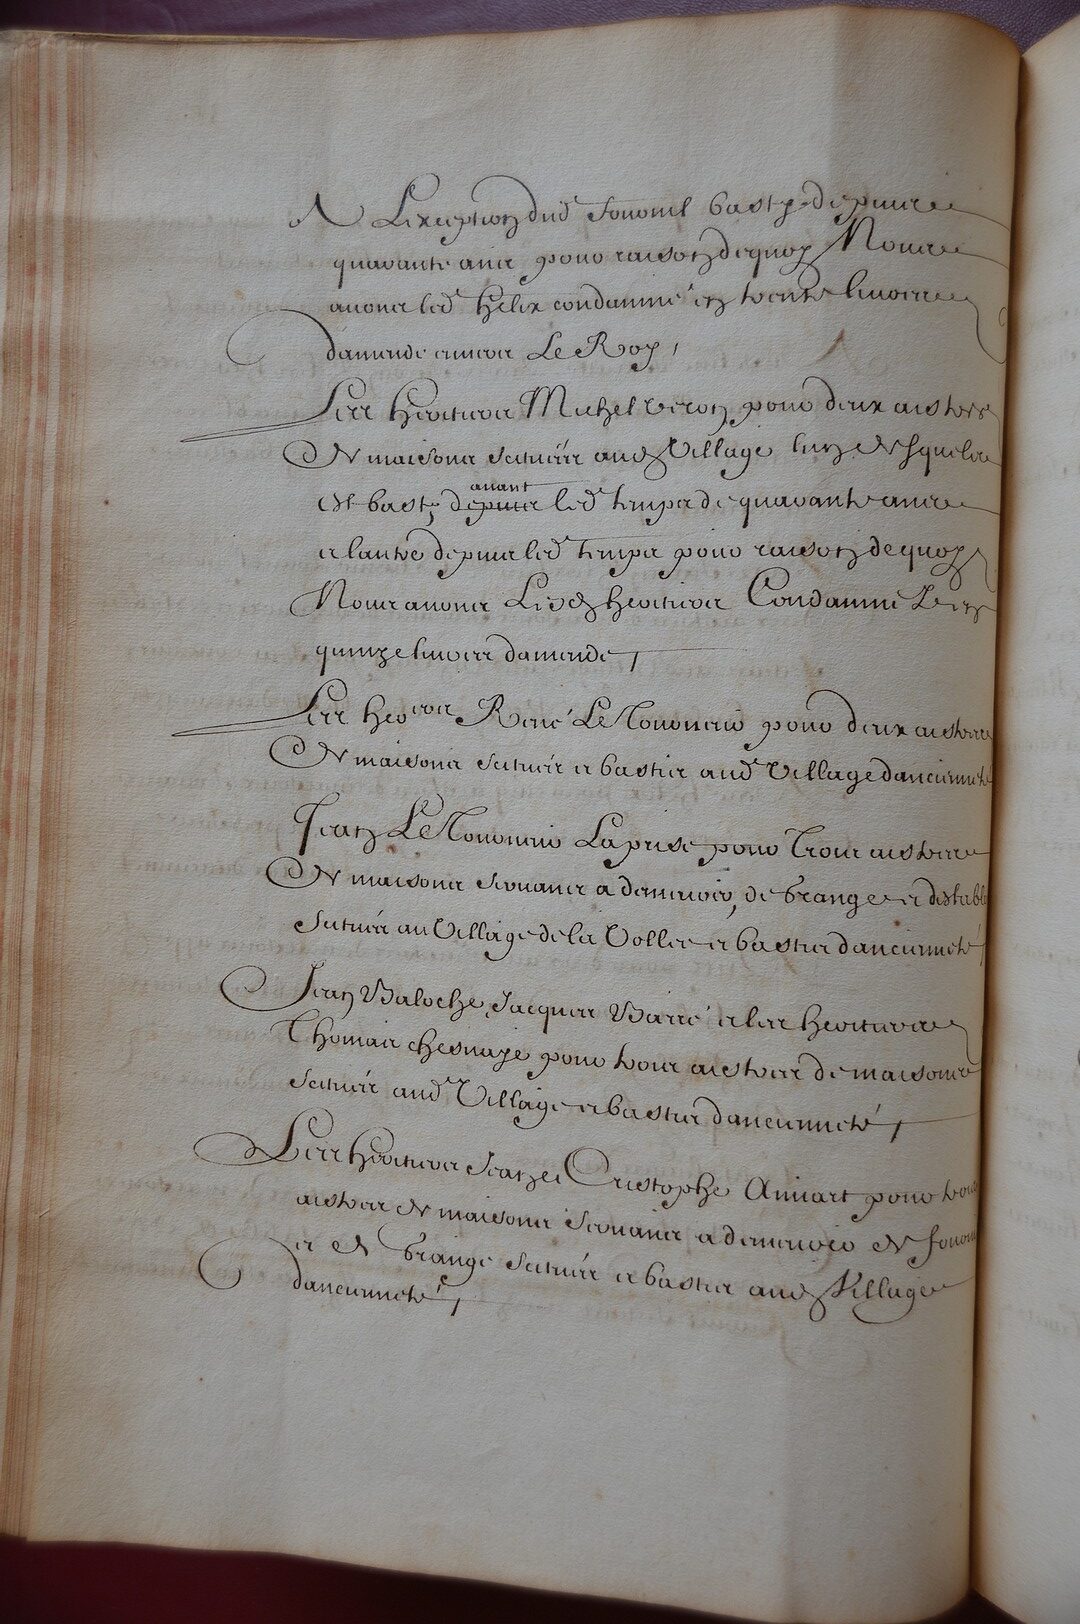 A Lexception dud. fournil basty depuis
quarante ans pour raison dequoy Nous
avons led. Helix condamné en trente livres
damende envers Le Roy,
Les heritiers Michel veron pour deux aistres
de maisons scitués aud. Village lun desquels
est basty avant depuis led. temps de quarante ans
et lautre depuis led. temps pour raison de quoy
Nous avons Lesd. heritiers Condamné en
quinze livres damende,
Les herers René Le Tonnerre pour deux aistres
de maisons scitués et bastis aud. Village dancienneté
Jean Le Laprise pour Trois aistres
de maisons servans a demeure, de grange et destable
scitués au Village de la Vollee et bastis dancienneté,
Jean Baloche, Jacques Barré et les heritiers
Thomas chesnaye pour trois aistres de maisons
scitués aud. Village et bastis dancienneté,
Les heritiers Jean et Cristophe Aniart pour trois
aistres de maisons servans a demeure de fourni
et de grange scitués et bastis aud. Village
dancienneté,